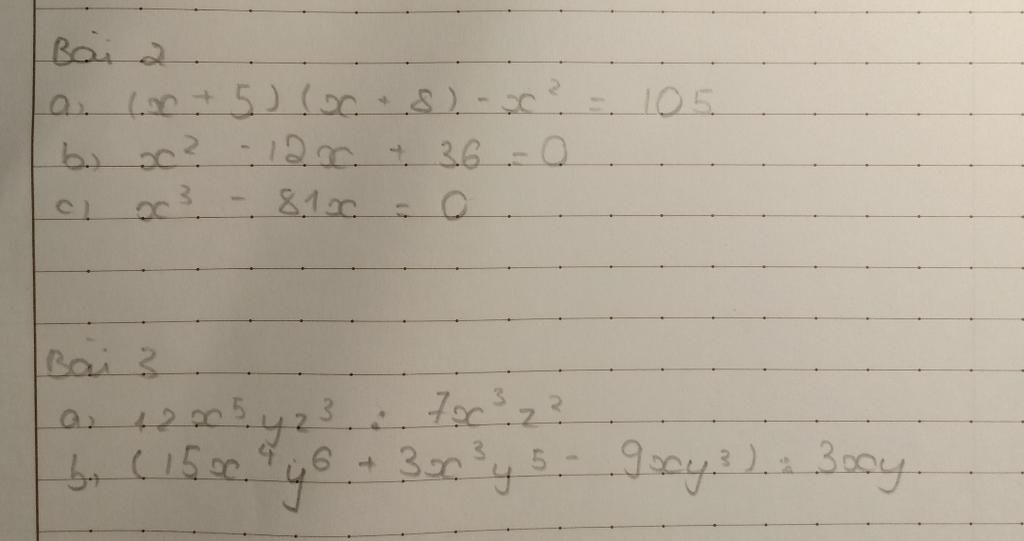 Bài 2
a, (x + 5) (x + 8) - x² = 105
b, x² - 12x + 36 = 0
c, x³ - 81x = 0
Bài 3
a, 12x⁵yz³ : 7x³z²
b, (15x⁴y⁶ + 3x³y⁵ - 9xy³) : 3xy